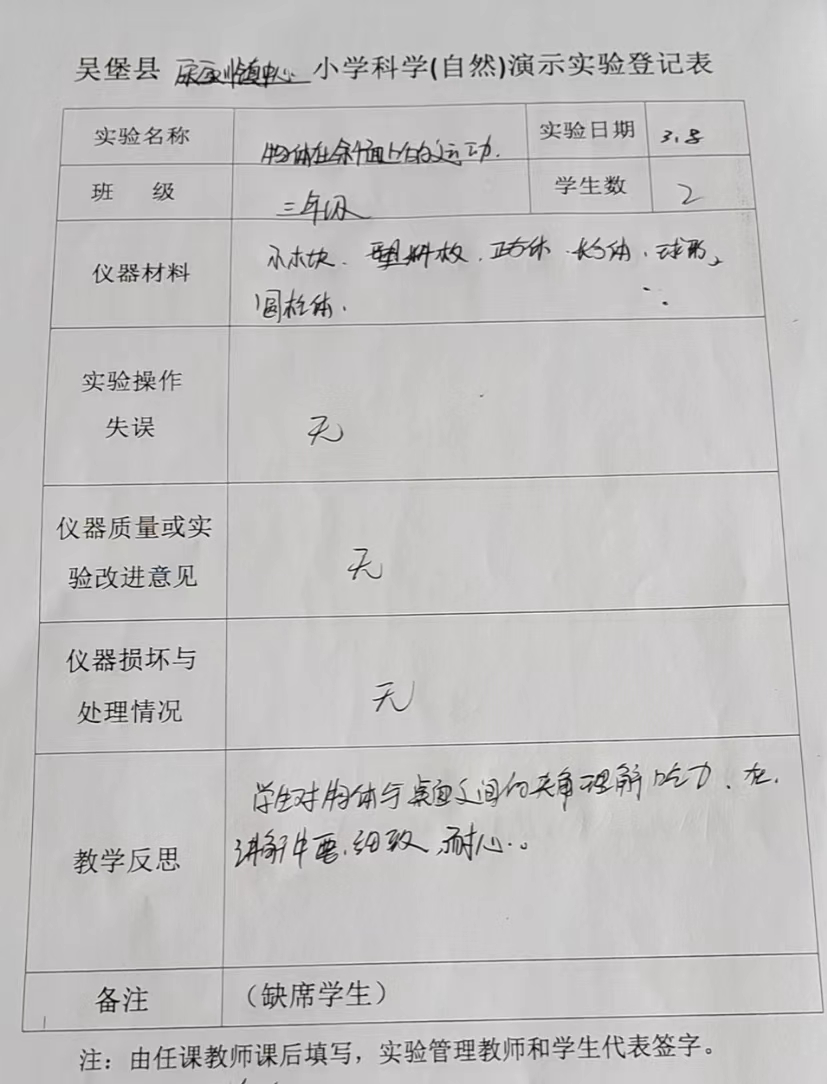 吴堡县 寇家塬镇中心 小学科学(自然)演示实验登记表
实验名称 物体在斜面上的运动. 实验日期 3.8
班 级 三年级 学生数 2
仪器材料 小木块、塑料板、正方体、长方体、球形、
圆柱体.
实验操作
失误 无
仪器质量或实
验改进意见 无
仪器损坏与
处理情况 无
教学反思 学生对物体与桌面之间的夹角理解吃力、在
讲解中要细致、耐心。
备注 (缺席学生)
注：由任课教师课后填写，实验管理教师和学生代表签字。